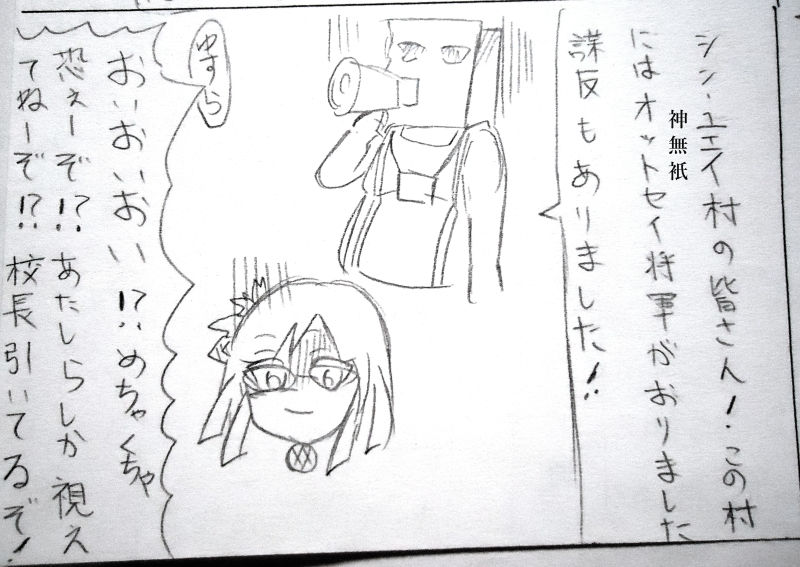 シン・ユエイ村の皆さん！この村
にはオットセイ将軍がおりました
神無祇
謀反もありました！
ゆすら
おいおいおい！？めちゃくちゃ
恐ぇーぞ！？あたしらしか視え
てねーぞ！？校長引いてるぞ！